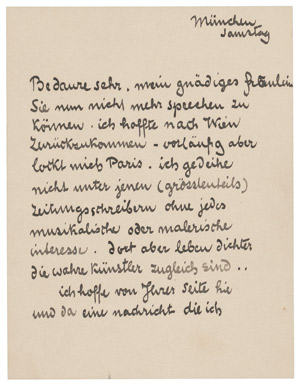 München
Samstag
Bedaure sehr, mein gnädiges fräulein
Sie nun nicht mehr sprechen zu
können. ich hoffte nach Wien
zurückzukommen – vorläufig aber
lockt mich Paris. ich gedeihe
nicht unter jenen (grösstenteils)
zeitungsschreibern ohne jedes
musikalische oder malerische
interesse. dort aber leben dichter
die wahre künstler zugleich sind..
ich hoffe von Ihrer seite hie
und da eine nachricht die ich